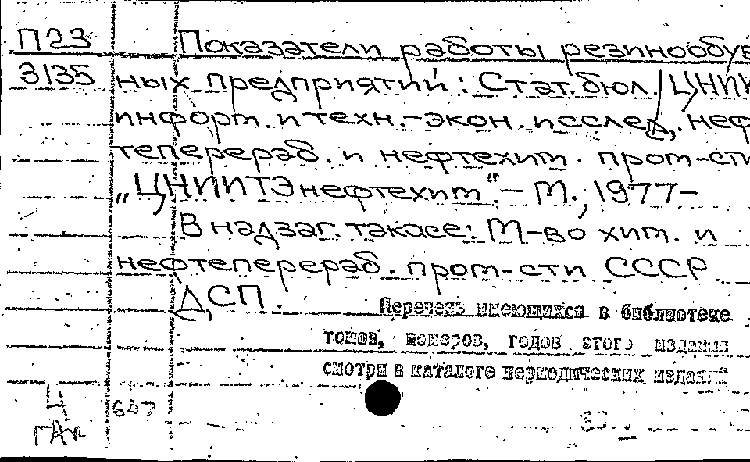 П23 Показатели работы резинообув
3135 ных предприятий: Стат. бюл. / ЦНИИ
информ. и техн.-экон. исслед. неф
теперераб. и нефтехим. пром-сти
"ЦНИИТЭнефтехим".- М., 1977-
В надзаг. также: М-во хим. и
нефтеперераб. пром-сти СССР
ДСП.
Перечень имеющихся в библиотеке
томов, номеров, годов этого издания
смотри в каталоге периодических изданий
Ц 647